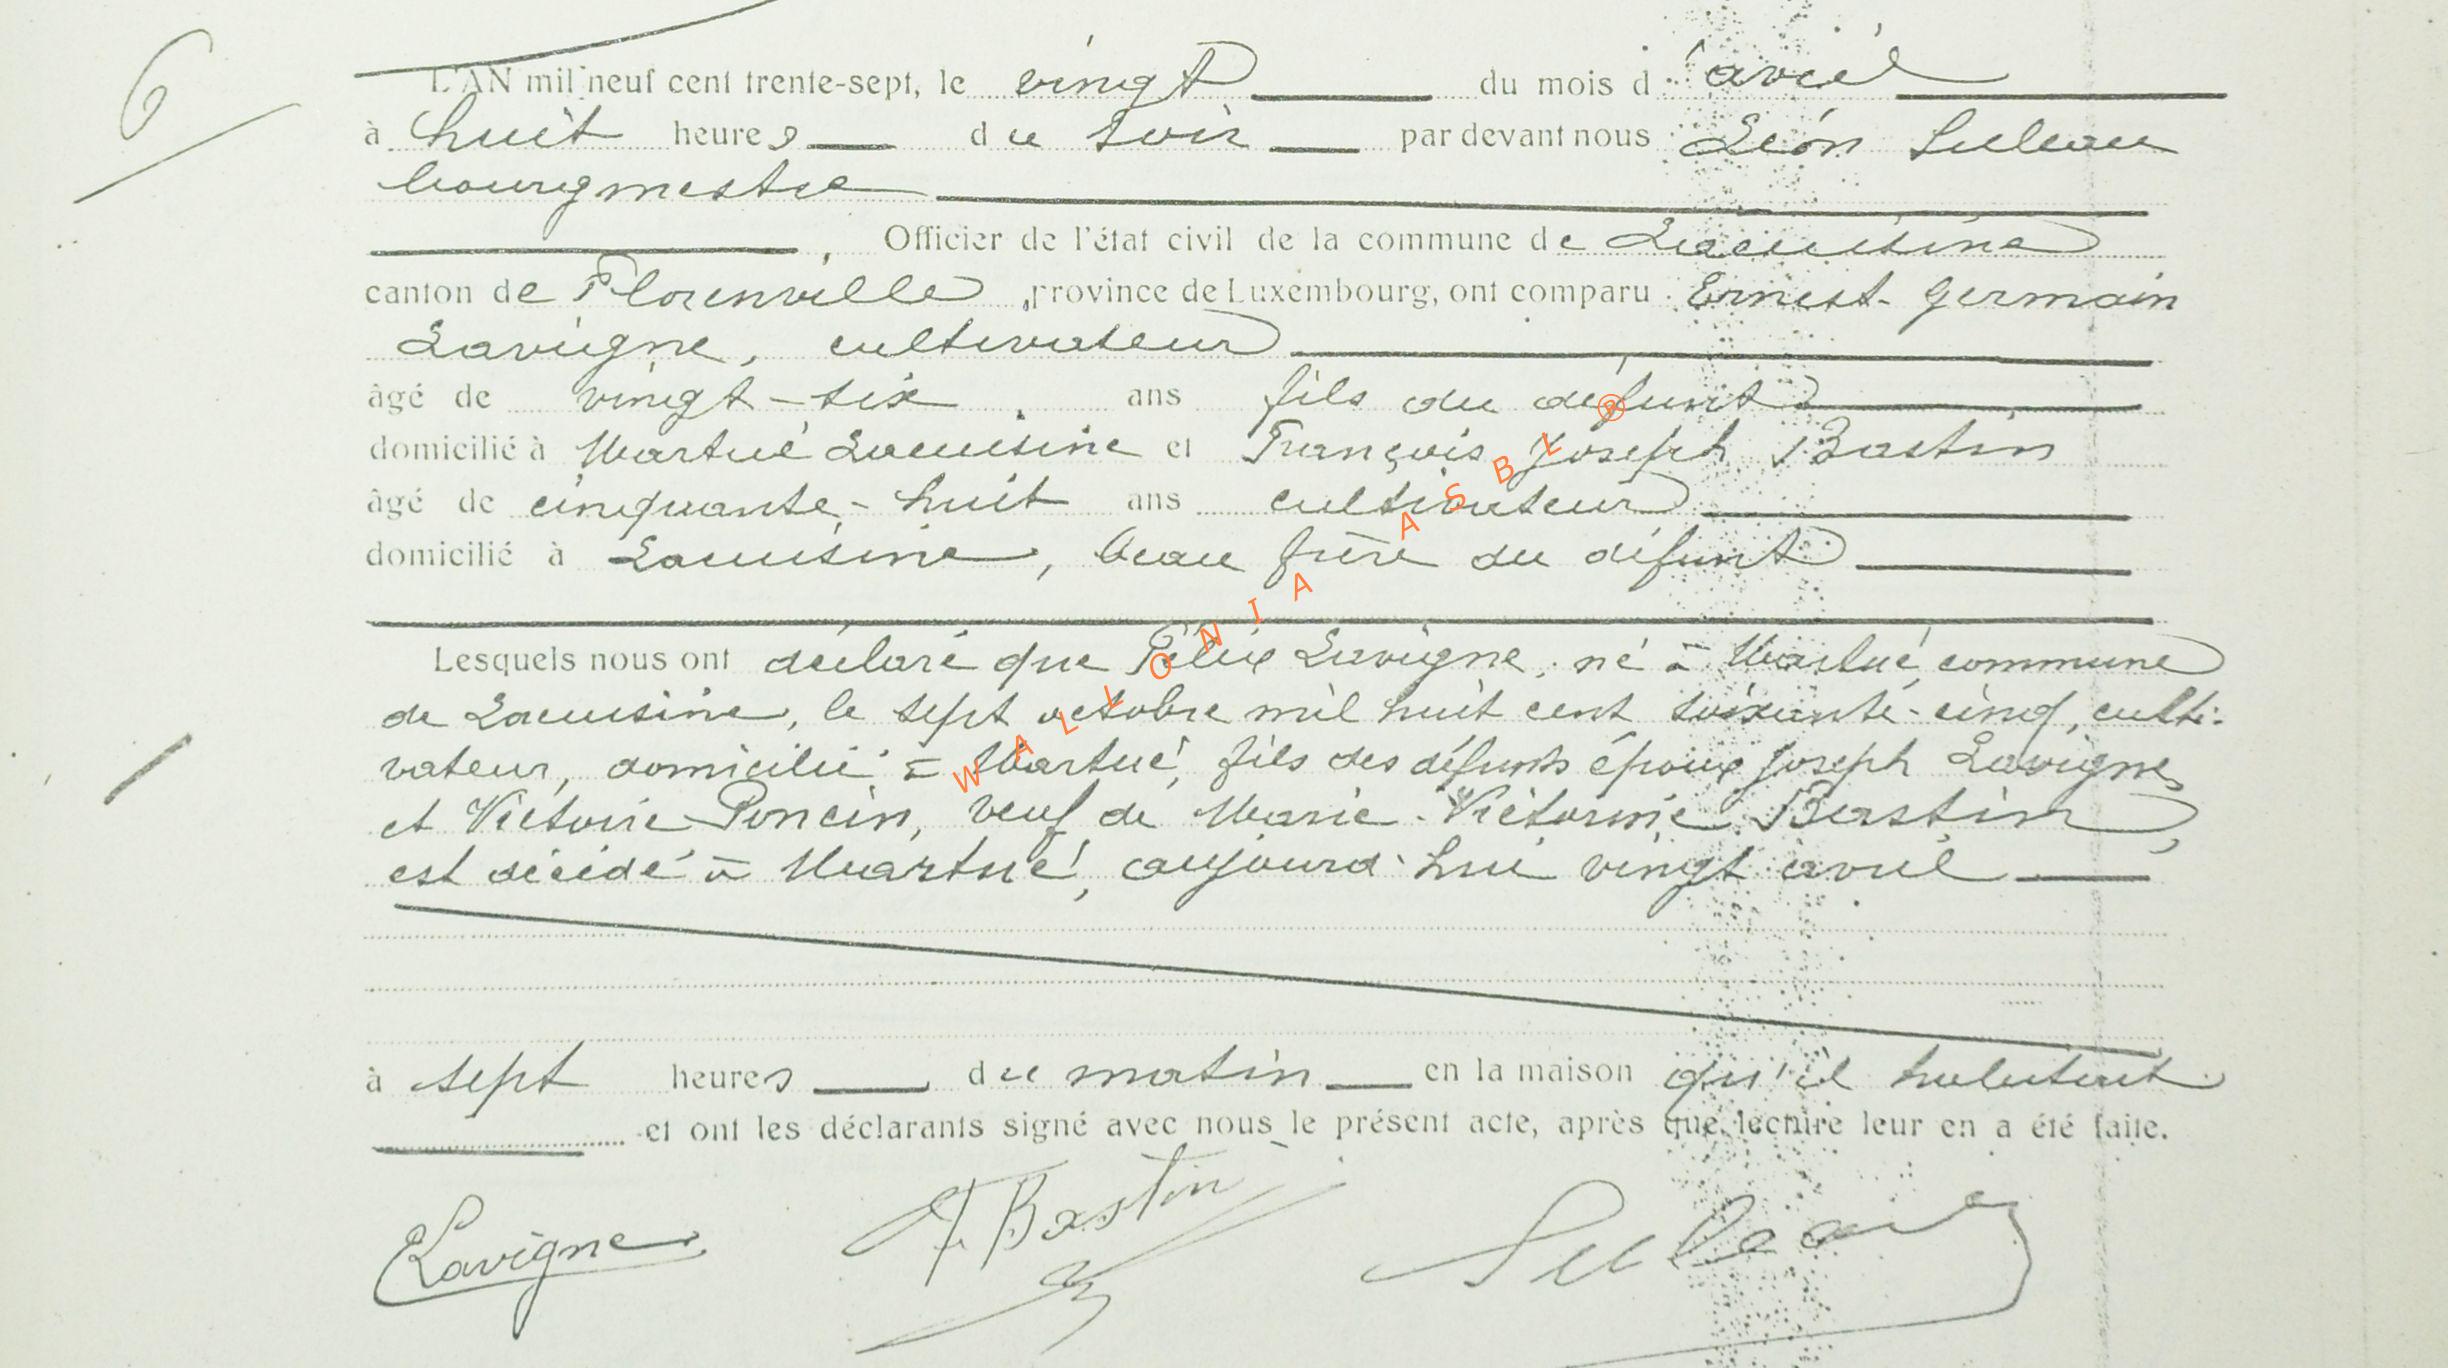 6
L'AN mil neuf cent trente-sept, le vingt du mois d'avril
à huit heures du soir par devant nous Léon Suleau
bourgmestre
, Officier de l'état civil de la commune de Lacuisine
canton de Florenville, province de Luxembourg, ont comparu Ernest-Germain
Lavigne, cultivateur
âgé de vingt-six ans fils du défunt
domicilié à Martué Lacuisine et François Joseph Bastin
âgé de cinquante-huit ans cultivateur
domicilié à Lacuisine, beau frère du défunt
Lesquels nous ont déclaré que Félix Lavigne, né à Martué, commune
de Lacuisine, le sept octobre mil huit cent soixante-cinq, culti-
vateur, domicilié à Martué, fils des défunts époux Joseph Lavigne
et Victoire Poncin, veuf de Marie-Victorine Bastin,
est décédé à Martué, aujourd'hui vingt avril
à sept heures du matin en la maison qu'il habitait
et ont les déclarants signé avec nous le présent acte, après que lecture leur en a été faite.
ELavigne F Bastin Suleau
WALLONIA ASBL ®